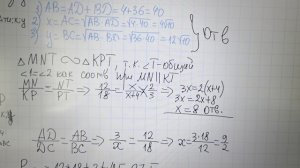 1) AB=AD+BD=4+36=40
2) x=AC=√AB·AD=√4·40=4√10
3) y=BC=√AB·BD=√36·40=12√10
} Отв
△MNT ∾ △KPT, т.к. ∠T-общий
∠1=∠2 как соотв при MN||KT
MN/KP = NT/PT ⇒ 12/18 = x/x+4 2/3 ⇒ 3x=2(x+4)
3x=2x+8
x=8 отв.
AD/DC = AB/BC ⇒ 3/x = 12/18 ⇒ x= 3·18/12 = 9/2